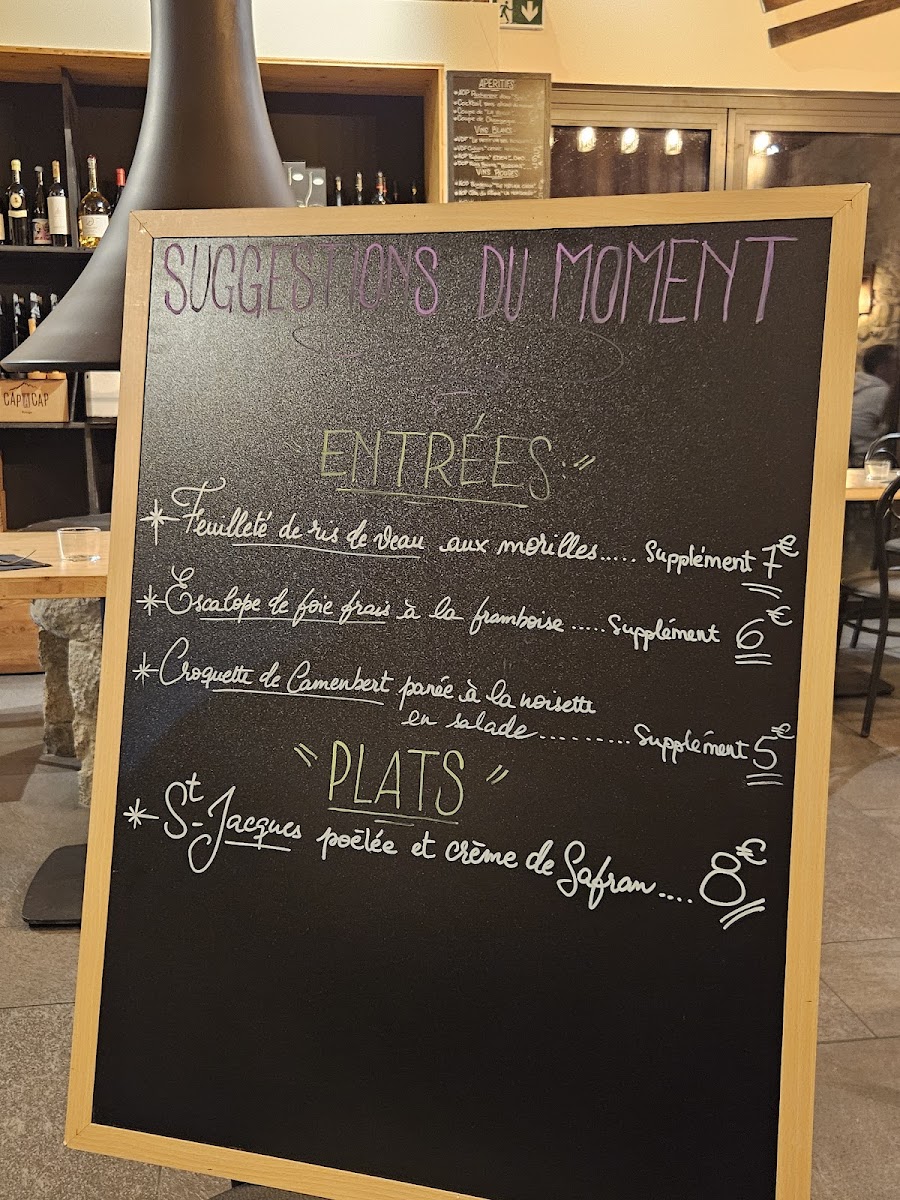 APERITIFS
VINS BLANCS
VINS ROUGES
CAP CAP
SUGGESTIONS DU MOMENT
ENTRÉES
Feuilleté de ris de veau aux morilles..... Supplément 7€
Escalope de foie frais à la framboise ..... Supplément 6€
Croquette de Camenbert panée à la noisette
en salade......... Supplément 5€
"PLATS"
St-Jacques poëlée et crème de Safran.... 8€